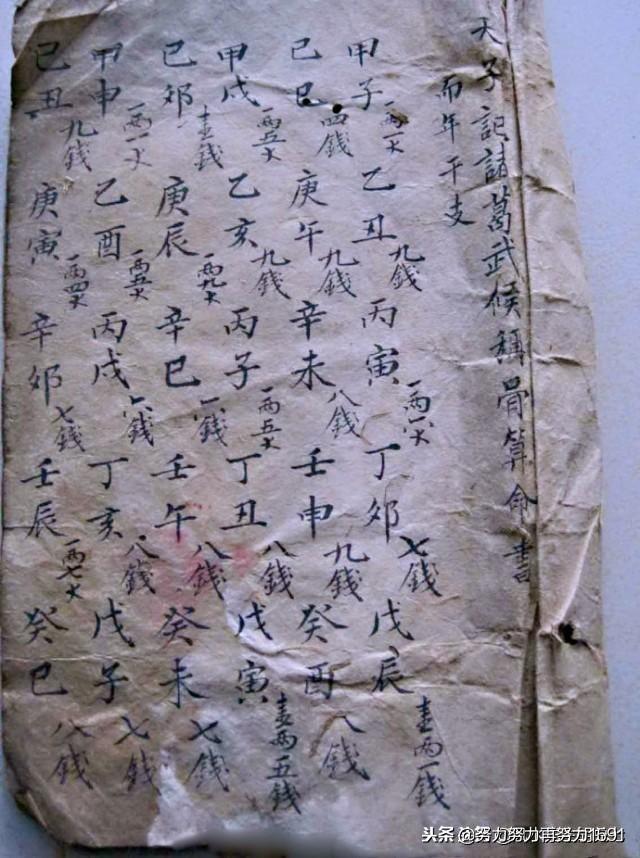 天子記諸葛武候稱骨算命書
而年干支
甲子 乙丑 九錢 丙寅 丁夘 七錢 戊辰 壹两一錢
己巳 四錢 庚午 九錢 辛未 八錢 壬申 九錢 癸酉 八錢
甲戌 一两五大 乙亥 九錢 丙子 一两五大 丁丑 八錢 戊寅 壹两五錢
己夘 壹錢 庚辰 一两九大 辛巳 六錢 壬午 八錢 癸未 七錢
甲申 一两一大 乙酉 一两五大 丙戌 六錢 丁亥 八錢 戊子 七錢
己丑 九錢 庚寅 一两四大 辛夘 七錢 壬辰 一两七大 癸巳 八錢
头条 @努力努力再努力